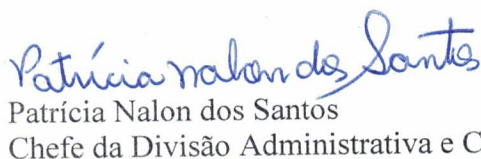 Patrícia Nalon dos Santos
Patrícia Nalon dos Santos
Chefe da Divisão Administrativa e C